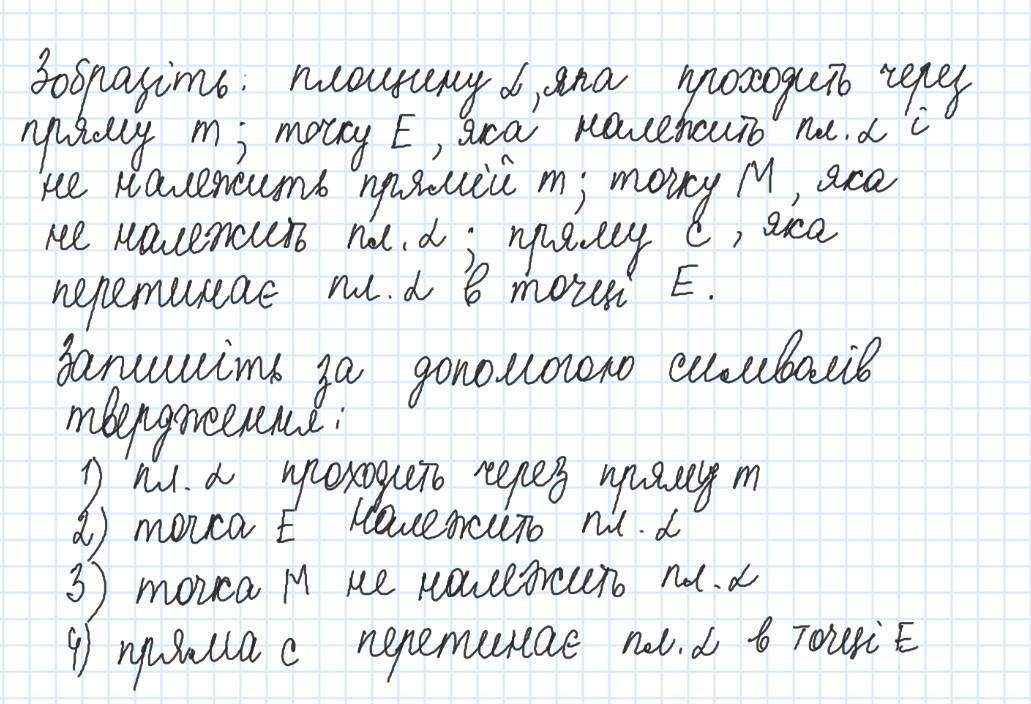 Зобразіть: площину α, яка проходить через
пряму m; точку E, яка належить пл. α і
не належить прямій m; точку M, яка
не належить пл. α; пряму c, яка
перетинає пл. α в точці E.
Запишіть за допомогою символів
твердження:
1) пл. α проходить через пряму m
2) точка E належить пл. α
3) точка M не належить пл. α
4) пряма c перетинає пл. α в точці E